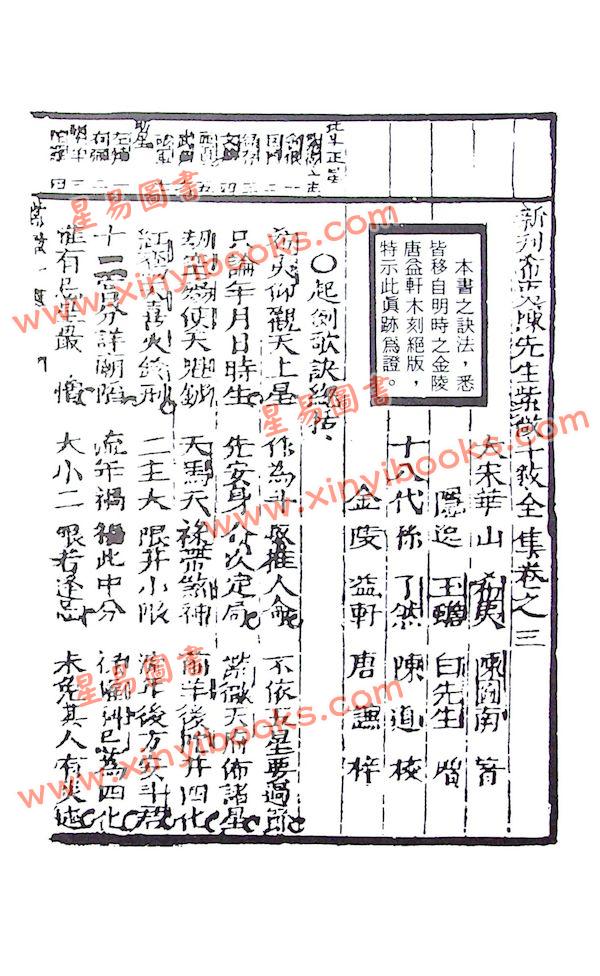 新刊希夷陳先生紫微斗数全集卷之三
大宋華山 希夷 陳圖南 著
隱逸 玉蟾 白先生 增
十八代孫 了然 陳道 校
金陵 益軒 唐謙 梓
本書之訣法，悉
皆移自明時之金陵
唐益軒木刻絕版，
特示此眞跡爲證。
○起例歌訣總括
希夷仰觀天上星 作為斗数推人命 不依五星要過節
只論年月日時生 先安身命次定局 紫微天府佈諸星
劫空傷使天魁鉞 天馬天祿帶煞神 前羊後陀并四化
紅鸞天喜火鈴刑 二主大限并小限 流年後方安斗君
十二宮分詳廟陷 流年禍福此中分 祿權科忌為四化
惟有忌星最 憎 大小二限若逢忌 未免其人有災
北斗正星
星易圖書
www.xinyibooks.com
星易圖書
www.xinyibooks.com
星易圖書
www.xinyibooks.com